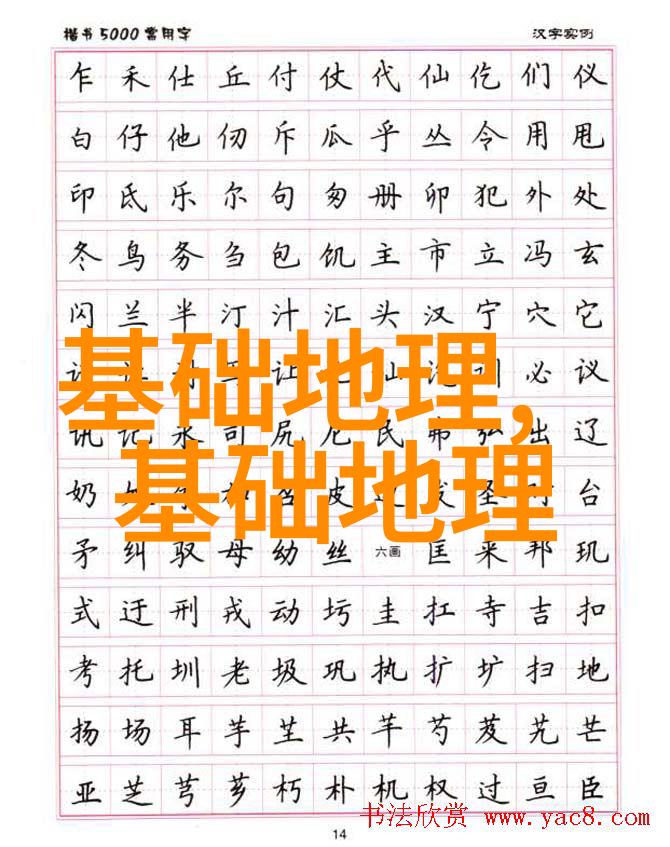 楷书5000常用字 汉字实例
乍 禾 仕 丘 付 仗 代 仙 仡 们 仪
白 仔 他 仞 斥 瓜 乎 丛 令 用 甩
印 氐 乐 尔 句 匆 册 卯 犯 外 处
冬 鸟 务 刍 包 饥 主 市 立 冯 玄
闪 兰 半 汀 汁 汇 头 汉 宁 穴 它
让 必 议
基础地理,
讯 记 永 司 尻 尼 民 弗 弘 出 辽
奶 皮 发 圣 台
基础地理
矛 纠 驭 母 幼 丝 六画 匡 耒 邦 玑
式 迂 刑 戎 动 圬 圭 扛 寺 吉 扣
考 托 圳 老 圾 巩 执 扩 圹 扫 地
扬 场 耳 芋 芏 共 芊 芍 芨 艽 芒
亚 芝 芎 芗 朽 朴 机 权 过 亘 臣
书法欣赏 www.yac8.com
14